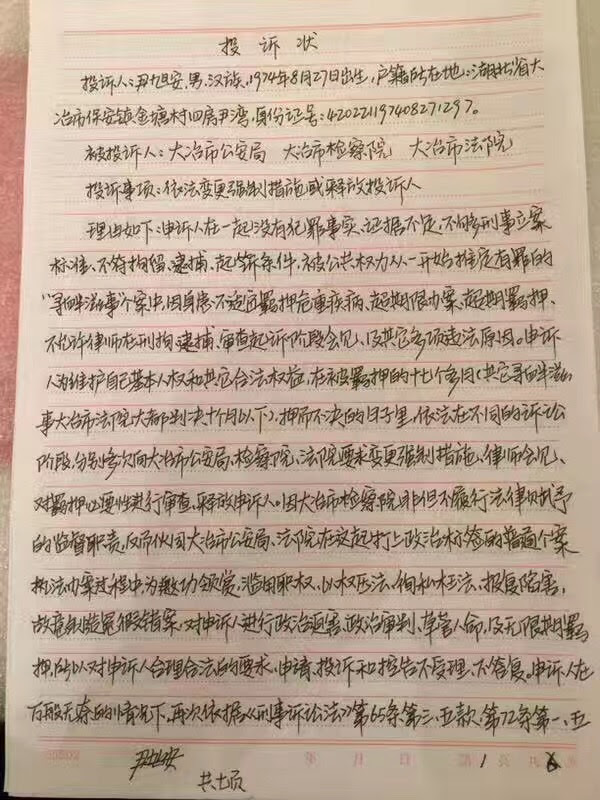 投诉状
投诉人:尹旭安,男,汉族,1974年8月27日出生,户籍所在地:湖北省大
冶市保安镇金塘村四房尹湾,身份证号:420221197408271297。
被投诉人:大冶市公安局 大冶市检察院 大冶市法院
投诉事项:依法变更强制措施或释放投诉人
理由如下:申诉人在一起没有犯罪事实、证据不足,不够刑事立案
标准、不符拘留、逮捕、起诉条件,被公共权力从一开始推定有罪的
“寻衅滋事”个案中,因身患不适宜羁押危重疾病、超期限办案、超期羁押、
不允许律师在刑拘、逮捕、审查起诉阶段会见、及其它多项违法原因。申诉
人为维护自己基本人权和其它合法权益,在被羁押的十七个多月(其它寻衅滋
事大冶市法院大都判决十个月以下),押而不决的日子里,依法在不同的诉讼
阶段,分别多次向大冶市公安局、检察院、法院要求变更强制措施、律师会见、
对羁押必要性进行审查、释放申诉人。因大冶市检察院非但不履行法律赋予
的监督职责,反而伙同大冶市公安局、法院在这起打上政治标签的普通个案
执法办案过程中,为邀功领赏,滥用职权、以权压法、徇私枉法、报复陷害,
故意制造冤假错案,对申诉人进行政治迫害、政治审判、草菅人命,及无限期羁
押,所以对申诉人合理合法的要求、申请、投诉和控告不受理、不答复。申诉人在
万般无奈的情况下,再次依据《刑事诉讼法》第65条第三、五款、第72条第一、五
尹旭安
共七页
1